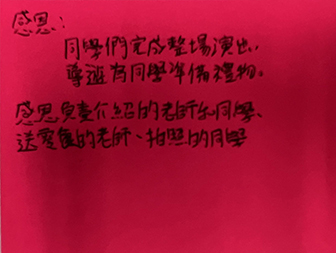 感恩:
同學們完成整場演出,
導遊為同學準備禮物。
感恩負責介紹的老師和同學、
送電售的老師、拍照的同學